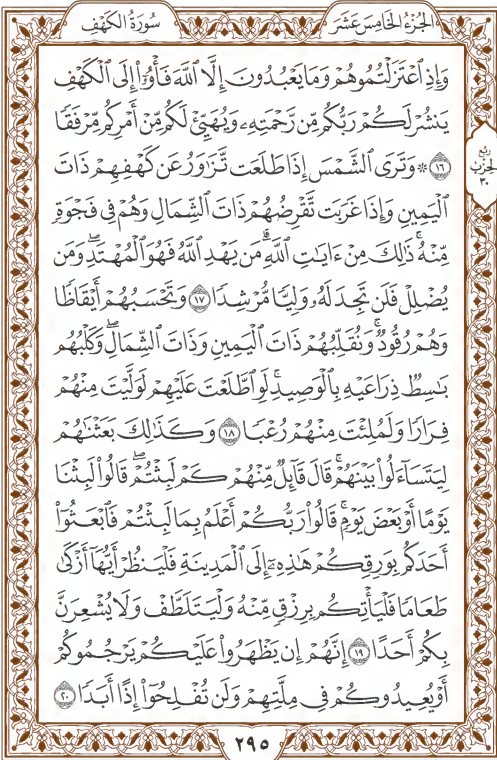 الجزء الخامس عشر
سورة الكهف
وَإِذِ ٱعۡتَزَلۡتُمُوهُمۡ وَمَا يَعۡبُدُونَ إِلَّا ٱللَّهَ فَأۡوُۥٓاْ إِلَى ٱلۡكَهۡفِ
يَنشُرۡ لَكُمۡ رَبُّكُم مِّن رَّحۡمَتِهِۦ وَيُهَيِّئۡ لَكُم مِّنۡ أَمۡرِكُم مِّرۡفَقٗا
١٦ ۞ وَتَرَى ٱلشَّمۡسَ إِذَا طَلَعَت تَّزَٰوَرُ عَن كَهۡفِهِمۡ ذَاتَ
ٱلۡيَمِينِ وَإِذَا غَرَبَت تَّقۡرِضُهُمۡ ذَاتَ ٱلشِّمَالِ وَهُمۡ فِي فَجۡوَةٖ
مِّنۡهُۚ ذَٰلِكَ مِنۡ ءَايَٰتِ ٱللَّهِۗ مَن يَهۡدِ ٱللَّهُ فَهُوَ ٱلۡمُهۡتَدِۖ وَمَن
يُضۡلِلۡ فَلَن تَجِدَ لَهُۥ وَلِيّٗا مُّرۡشِدٗا ١٧ وَتَحۡسَبُهُمۡ أَيۡقَاظٗا
وَهُمۡ رُقُودٞۚ وَنُقَلِّبُهُمۡ ذَاتَ ٱلۡيَمِينِ وَذَاتَ ٱلشِّمَالِۖ وَكَلۡبُهُم
بَٰسِطٞ ذِرَاعَيۡهِ بِٱلۡوَصِيدِۚ لَوِ ٱطَّلَعۡتَ عَلَيۡهِمۡ لَوَلَّيۡتَ مِنۡهُمۡ
فِرَارٗا وَلَمُلِئۡتَ مِنۡهُمۡ رُعۡبٗا ١٨ وَكَذَٰلِكَ بَعَثۡنَٰهُمۡ
لِيَتَسَآءَلُواْ بَيۡنَهُمۡۚ قَالَ قَآئِلٞ مِّنۡهُمۡ كَمۡ لَبِثۡتُمۡۖ قَالُواْ لَبِثۡنَا
يَوۡمًا أَوۡ بَعۡضَ يَوۡمٖۚ قَالُواْ رَبُّكُمۡ أَعۡلَمُ بِمَا لَبِثۡتُمۡ فَٱبۡعَثُوٓاْ
أَحَدَكُم بِوَرِقِكُمۡ هَٰذِهِۦٓ إِلَى ٱلۡمَدِينَةِ فَلۡيَنظُرۡ أَيُّهَآ أَزۡكَىٰ
طَعَامٗا فَلۡيَأۡتِكُم بِرِزۡقٖ مِّنۡهُ وَلۡيَتَلَطَّفۡ وَلَا يُشۡعِرَنَّ
بِكُمۡ أَحَدًا ١٩ إِنَّهُمۡ إِن يَظۡهَرُواْ عَلَيۡكُمۡ يَرۡجُمُوكُمۡ
أَوۡ يُعِيدُوكُمۡ فِي مِلَّتِهِمۡ وَلَن تُفۡلِحُوٓاْ إِذًا أَبَدٗا ٢٠
ربع
الحزب
٣٠
٢٩٥